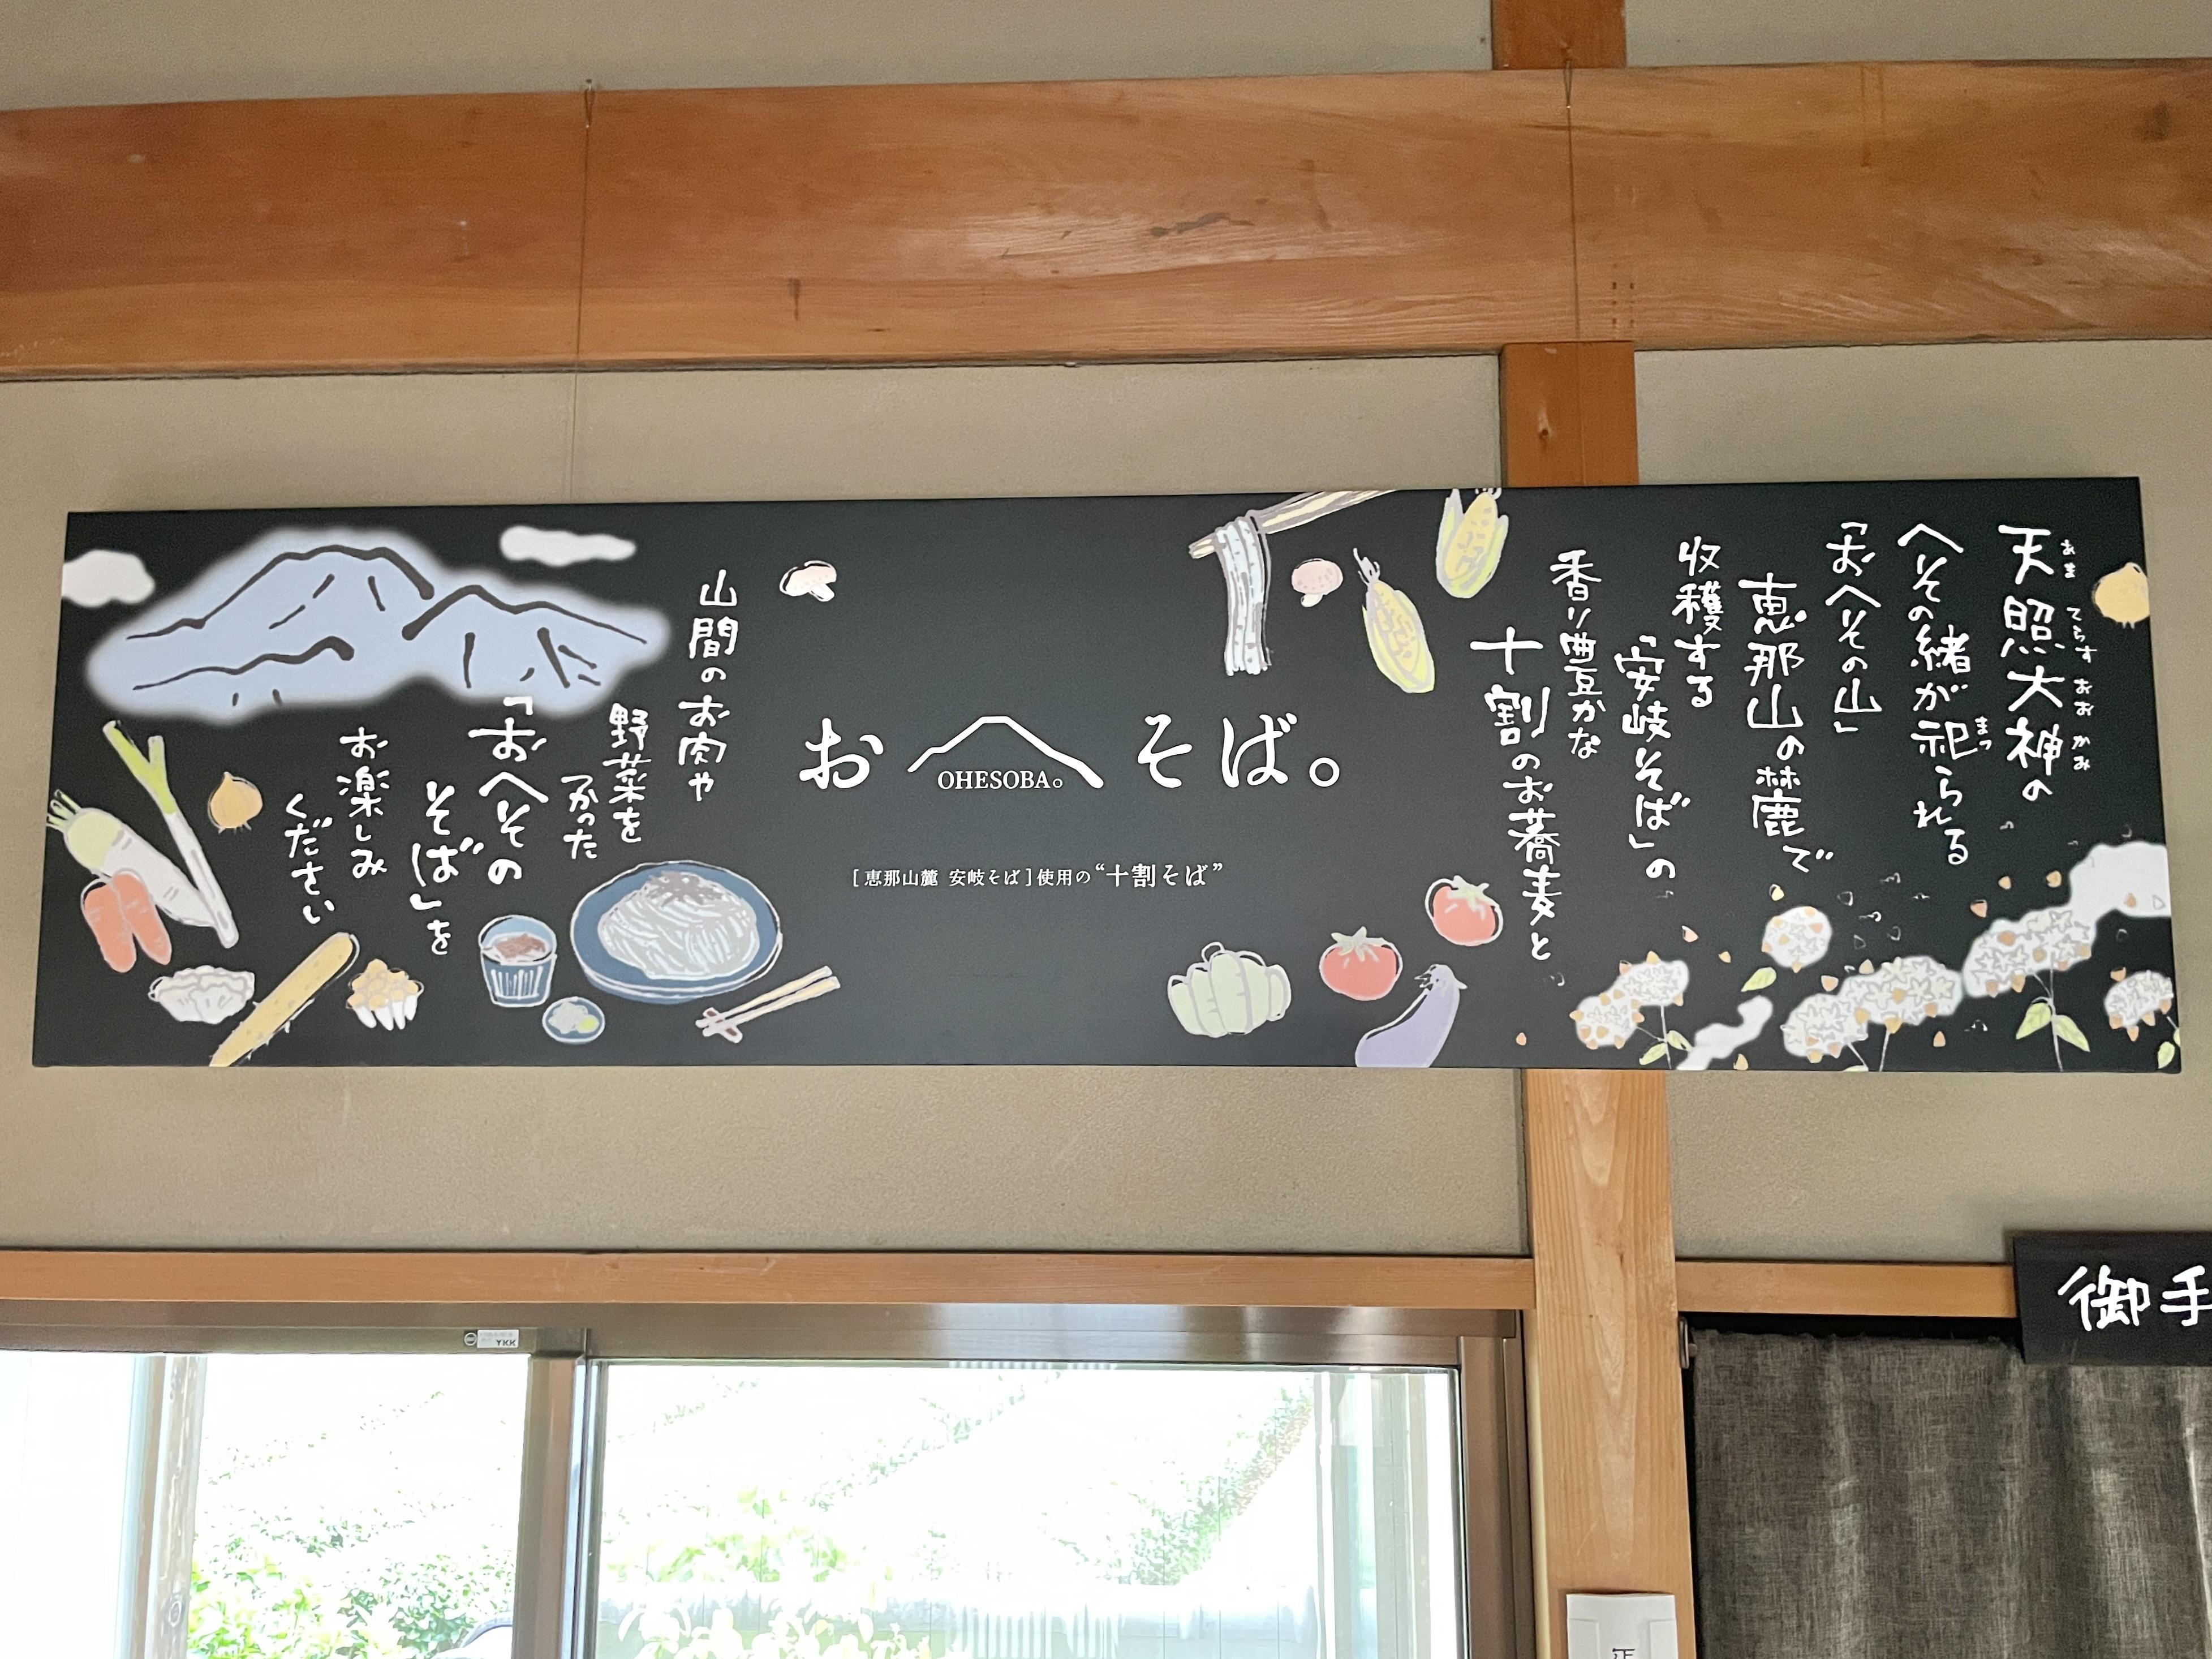 天照大神の
あま てらす おお かみ
へその緒が祀られる
まつ
「おへその山」
恵那山の麓で
収穫する
「安岐そば」の
香り豊かな
十割のお蕎麦と
おへそば。
OHESOBA。
[恵那山麓 安岐そば]使用の“十割そば”
山間のお肉や
野菜を
つかった
「おへその
そば」を
お楽しみ
ください
御手
YKK
正